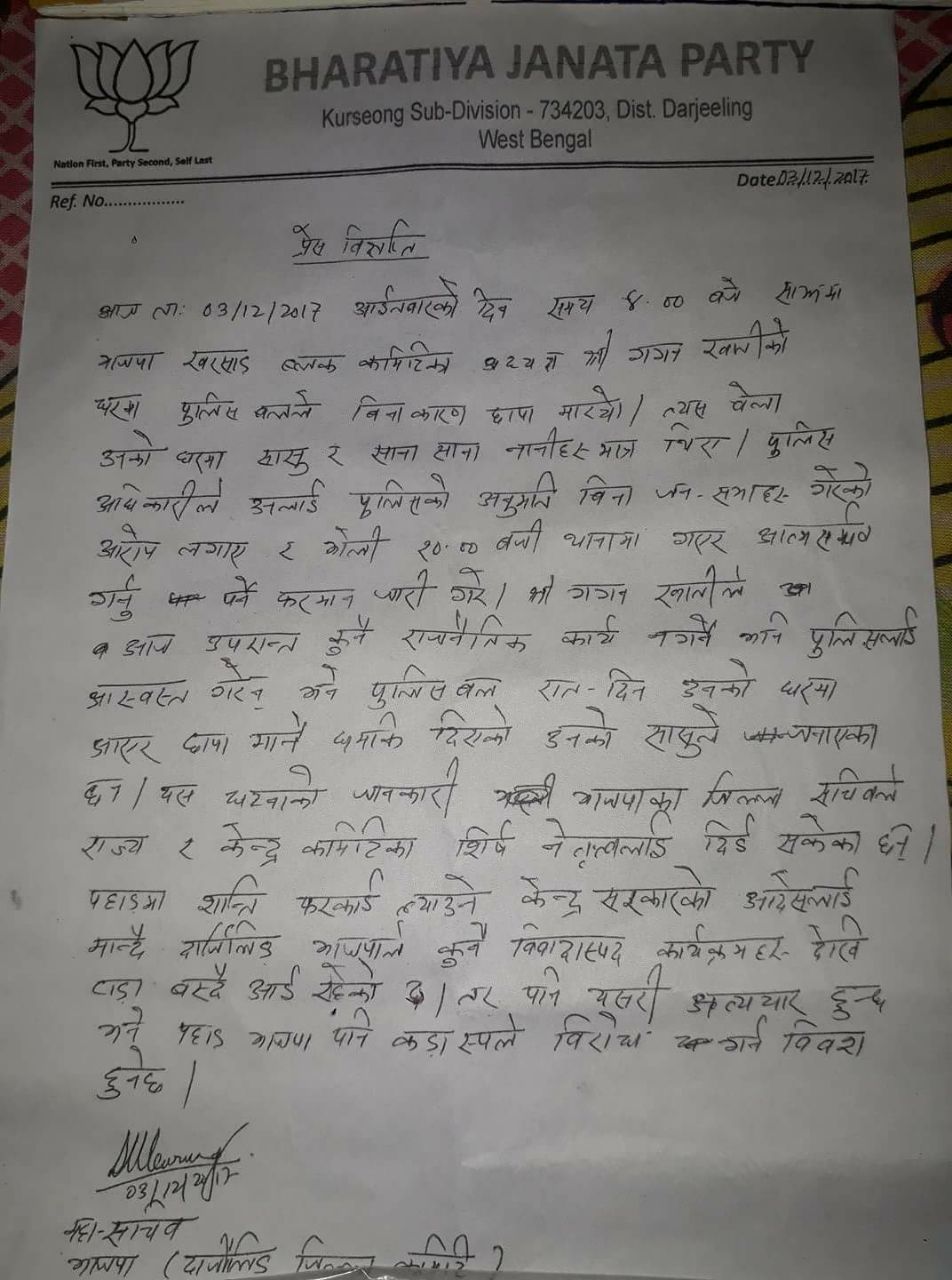 BHARATIYA JANATA PARTY
Kurseong Sub-Division - 734203, Dist. Darjeeling
West Bengal
Nation First, Party Second, Self Last
Date 03/12/2017
Ref. No................
प्रेस विज्ञप्ति
आज ता: 03/12/2017 आईतवारको दिन समय ४:०० बजे साझमा
भाजपा खरसाङ ब्लक कमिटिका अध्यक्ष श्री गगन खातीको
घरमा पुलिस बलले बिना कारण छापा मारयो। त्यस बेला
उनको घरमा सासु र साना साना नानीहरू मात्र थिए। पुलिस
अधिकारीले उनलाई पुलिसको अनुमति बिना जन-सभाहरू गरेको
आरोप लगाए र भोली १०:०० बजी थानामा गएर आत्मसमर्पण
गर्नु पर्ने फरमान जारी गरे। श्री गगन खातीले
आज उपरान्त कुनै राजनैतिक कार्य नगर्ने भनि पुलिसलाई
आस्वस्त गरेन् भने पुलिस बल रात-दिन उनको घरमा
आएर छापा मार्ने धम्कि दिएको उनको सासुले जनाएका
छन्। यस घटनाको जानकारी भाजपाका जिल्ला सचिवले
राज्य र केन्द्र कमिटिका शिर्ष नेतृत्वलाई दिई सकेका छन्।
पहाडमा शान्ति फरकाई ल्याउने केन्द्र सरकारको आदेसलाई
मान्दै दार्जिलिङ भाजपाले कुनै विवादास्पद कार्यक्रमहरू देखि
टाढा बस्दै आई रहेको छ। तर पनि यसरी अत्यचार हुन्छ
भने पहाड भाजपा पनि कडा रूपले विरोध गर्न विवश
हुनेछ।
03/12/2017
महा-सचिव
भाजपा (दार्जीलिङ जिल्ला कमिटी)